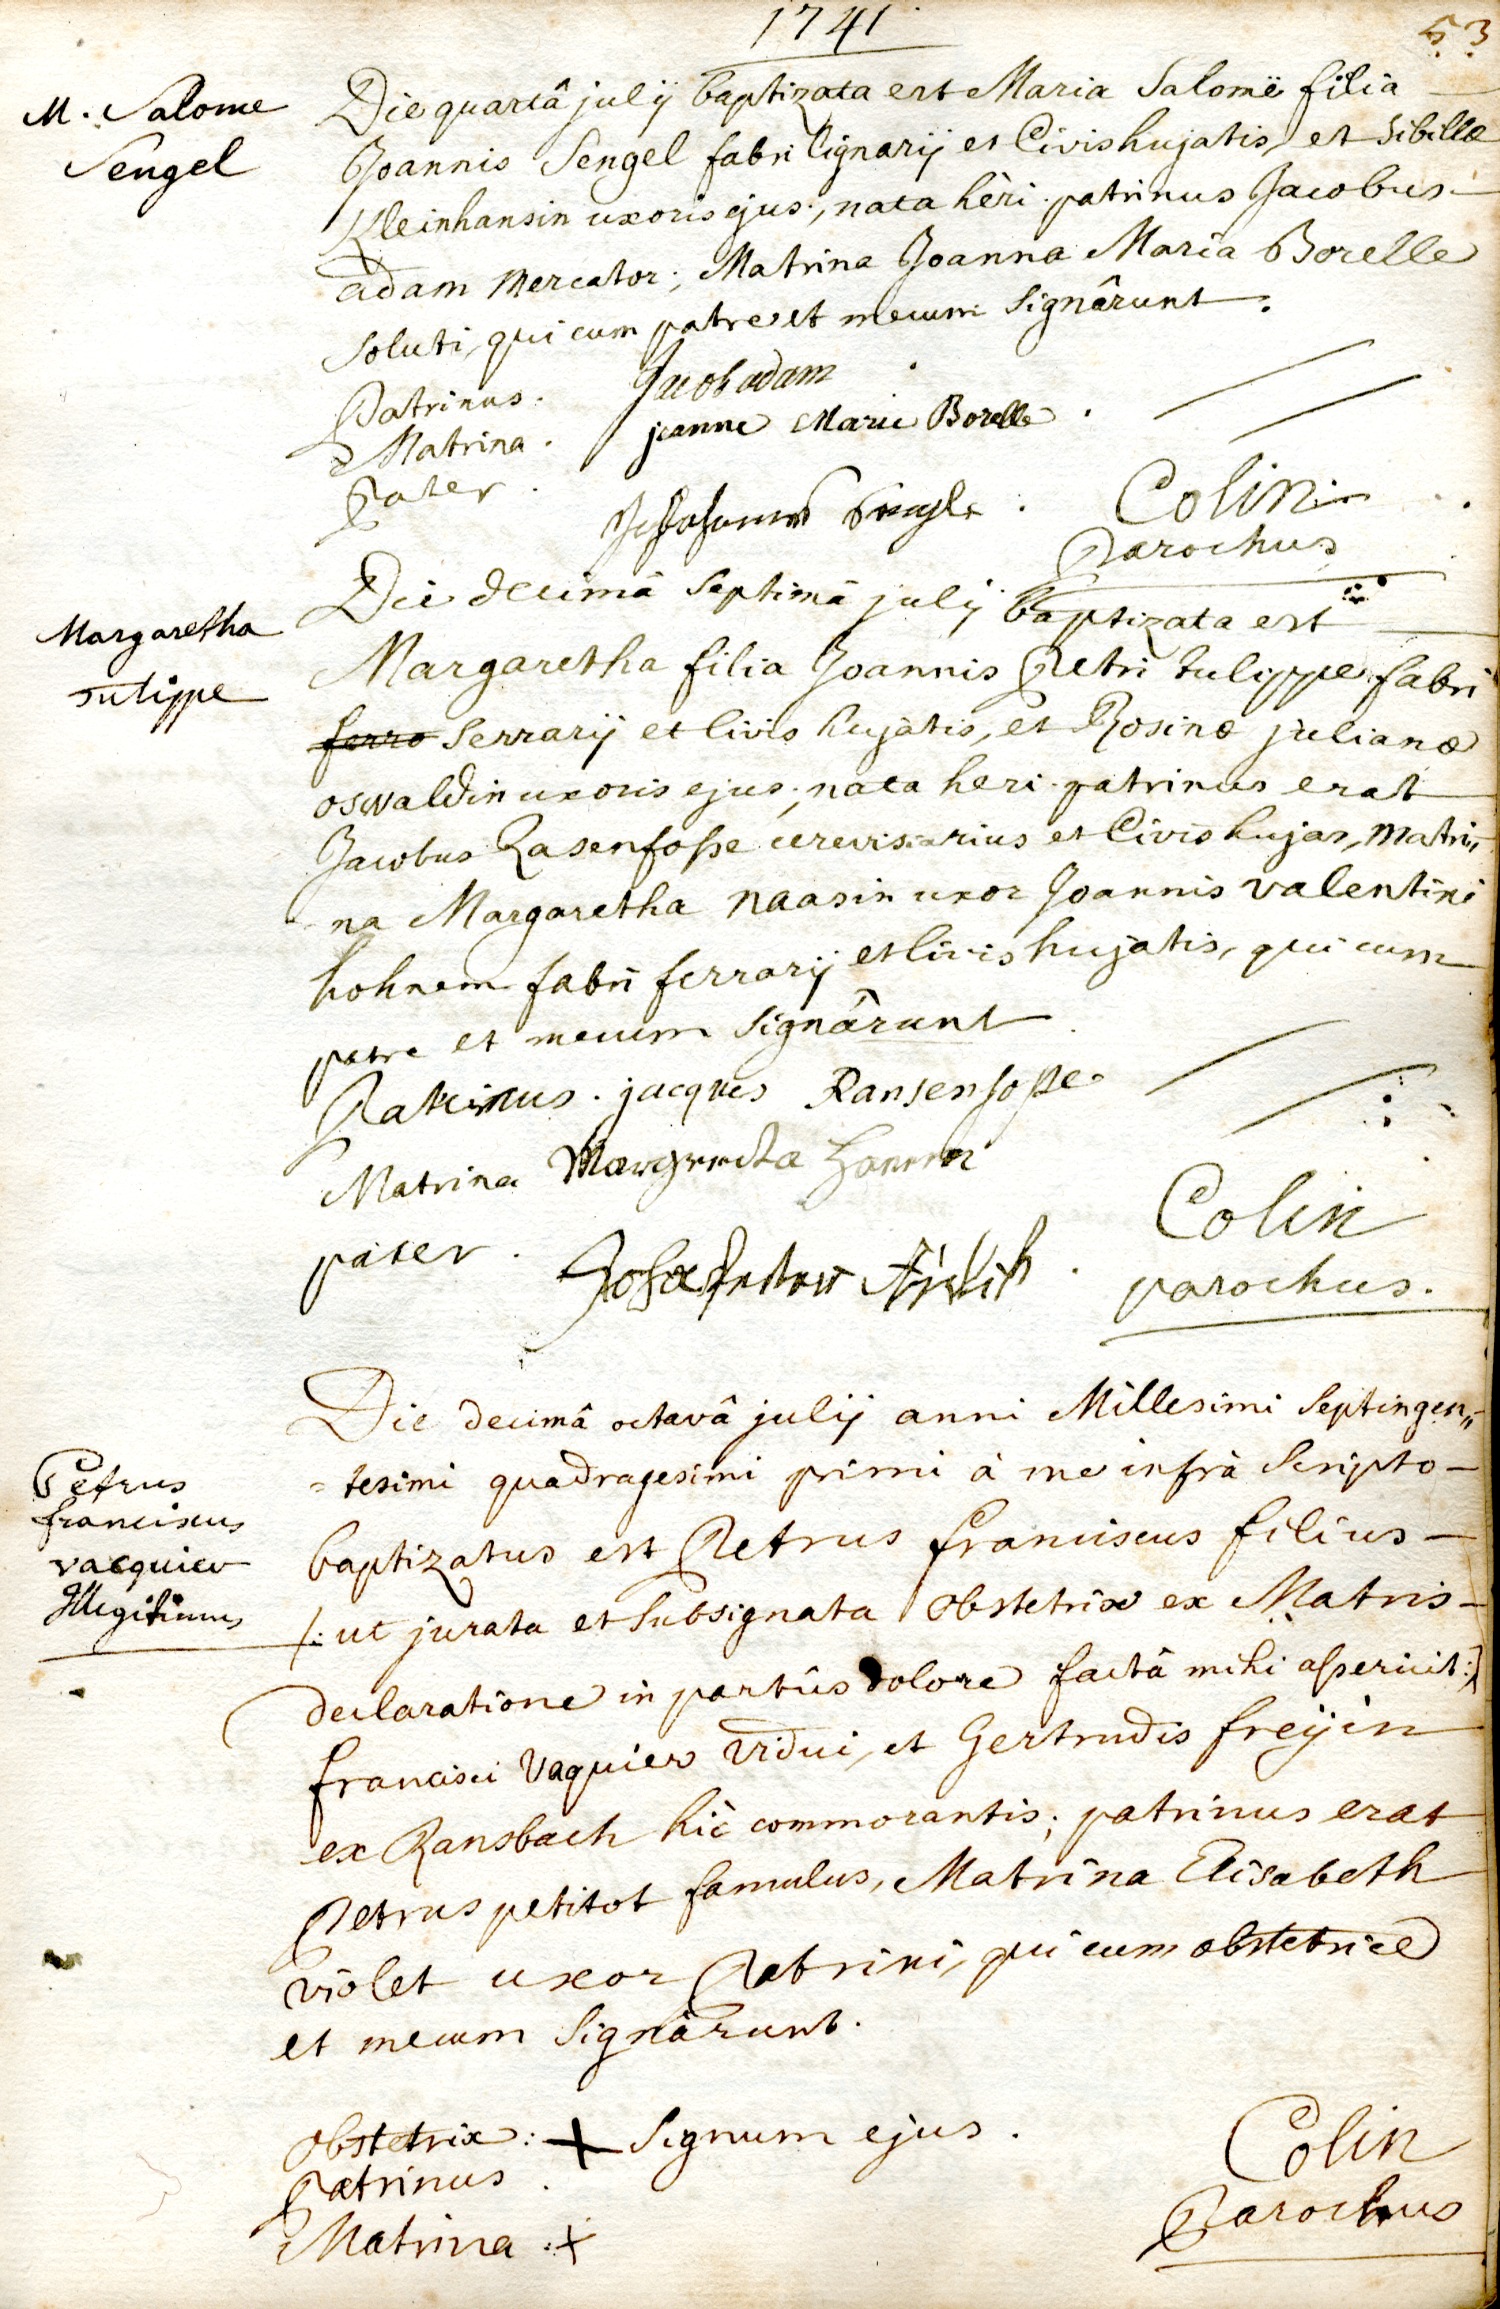 1741
53
M. Salome
Sengel
Die quartâ julij baptizata est Maria Salomë filia
Joannis Sengel fabri lignarij et Civis hujatis, et Sibillæ
Kleinhansin uxoris ejus, nata hèri. patrinus Jacobus
adam Mercator; Matrina Joanna Maria Borelle
soluti, qui cum patre et mecum signârunt.
Patrinus. Jacob adam
Matrina. jeanne Marie Borelle.
Pater.
Colin
Parochus
Margaretha
Tulippe
Die decimâ septimâ julij baptizata est
Margaretha filia Joannis Petri tulippe fabri
ferro serrarij et Civis hujatis, et Rosinæ julianæ
oswaldin uxoris ejus, nata heri. patrinus erat
Jacobus Rasenfosse cerevisiarius et Civis hujas, Matri,,
na Margaretha Naasin uxor Joannis valentini
hohnem fabri ferrarij et Civis hujatis, qui cum
patre et mecum signârunt
Patrinus. jacques Ransenfosse
Matrina Margretha
pater.
Colin
parochus.
Petrus
franciscus
vacquier
Illegitimus
Die decimâ octavâ julij anni Millesimi septingen,,
=tesimi quadragesimi primi à me infrà scripto
baptizatus est Petrus franciscus filius
/: ut jurata et subsignata obstetrix ex Matris
declaratione in partûs dolore factâ mihi asseruit :/
francisci Vaquier Vidui, et Gertrudis freÿin
ex Ransbach hìc commorantis; patrinus erat
Petrus petitot famulus, Matrina Elisabeth
violet uxor Patrini, qui cum obstetrice
et mecum signârunt.
obstetrix: + signum ejus.
Patrinus.
Matrina. +
Colin
Parochus